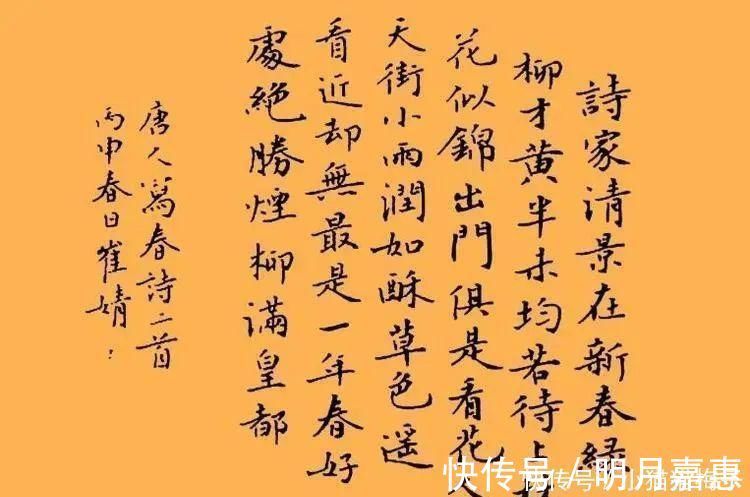 詩家清景在新春綠
柳才黄半未均若待上
花似錦出門俱是看花人
天街小雨潤如酥草色遥
看近却無最是一年春好
處絶勝煙柳滿皇都
唐人寫春詩二首
丙申春日崔婧
快传号 / 明月嘉惠